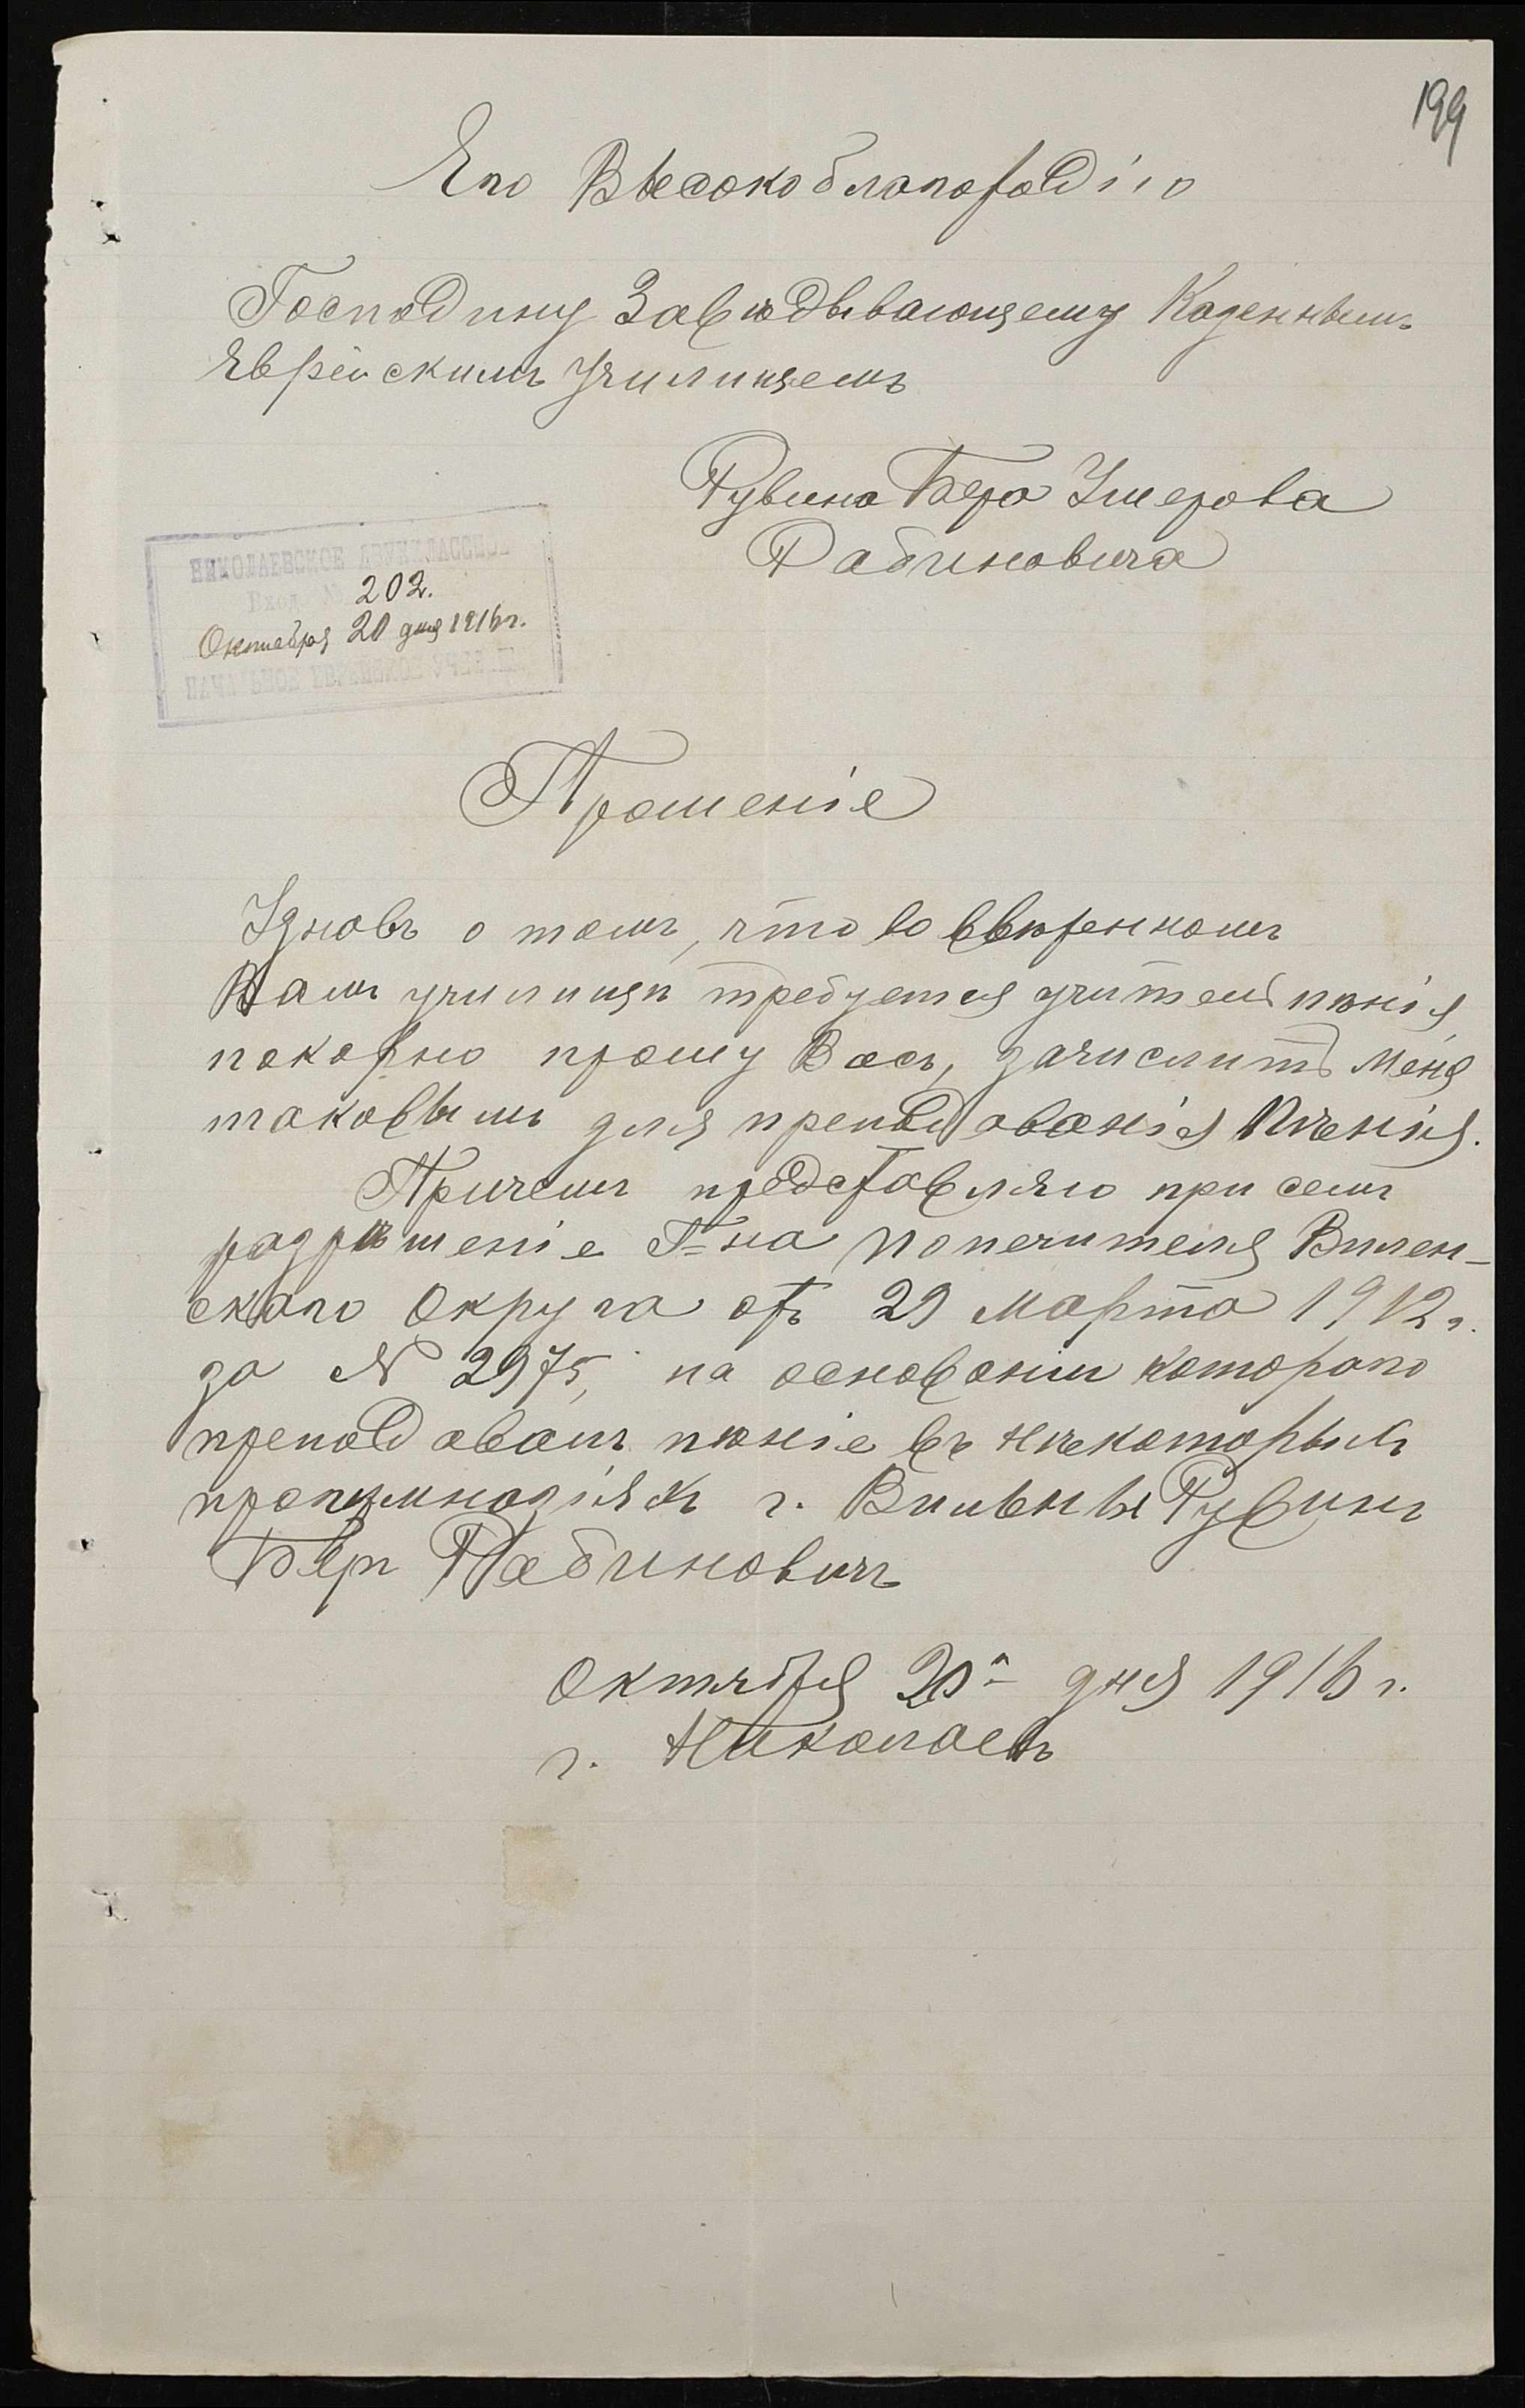 199
Его Высокоблагородію
Господину Завѣдывающему Казеннымъ
Еврейскимъ Училищемъ
Рувина Бера Умерова
Рабиновича
НИКОЛАЕВСКОЕ ДВУХКЛАССНОЕ
Вход. № 202.
Октября 20 дня 1916 г.
НАЧАЛЬНОЕ ЕВРЕЙСКОЕ УЧИЛИЩЕ
Прошеніе
Узновъ о томъ, что во ввѣренномъ
Вамъ училищѣ требуется учитель пѣнія,
покорно прошу Васъ, зачислить меня
таковымъ для преподованія Пѣнія.
Причемъ представляю при семъ
разрѣшеніе Г=на Попечителя Вилен-
скаго Округа отъ 29 Марта 1912 г.
за № 2975, на основаніи котораго
преподовалъ пѣніе въ нѣкоторыхъ
прогимназіяхъ г. Вильны Рувинъ
Беръ Рабиновичъ
Октября 20го дня 1916 г.
г. Николаевъ